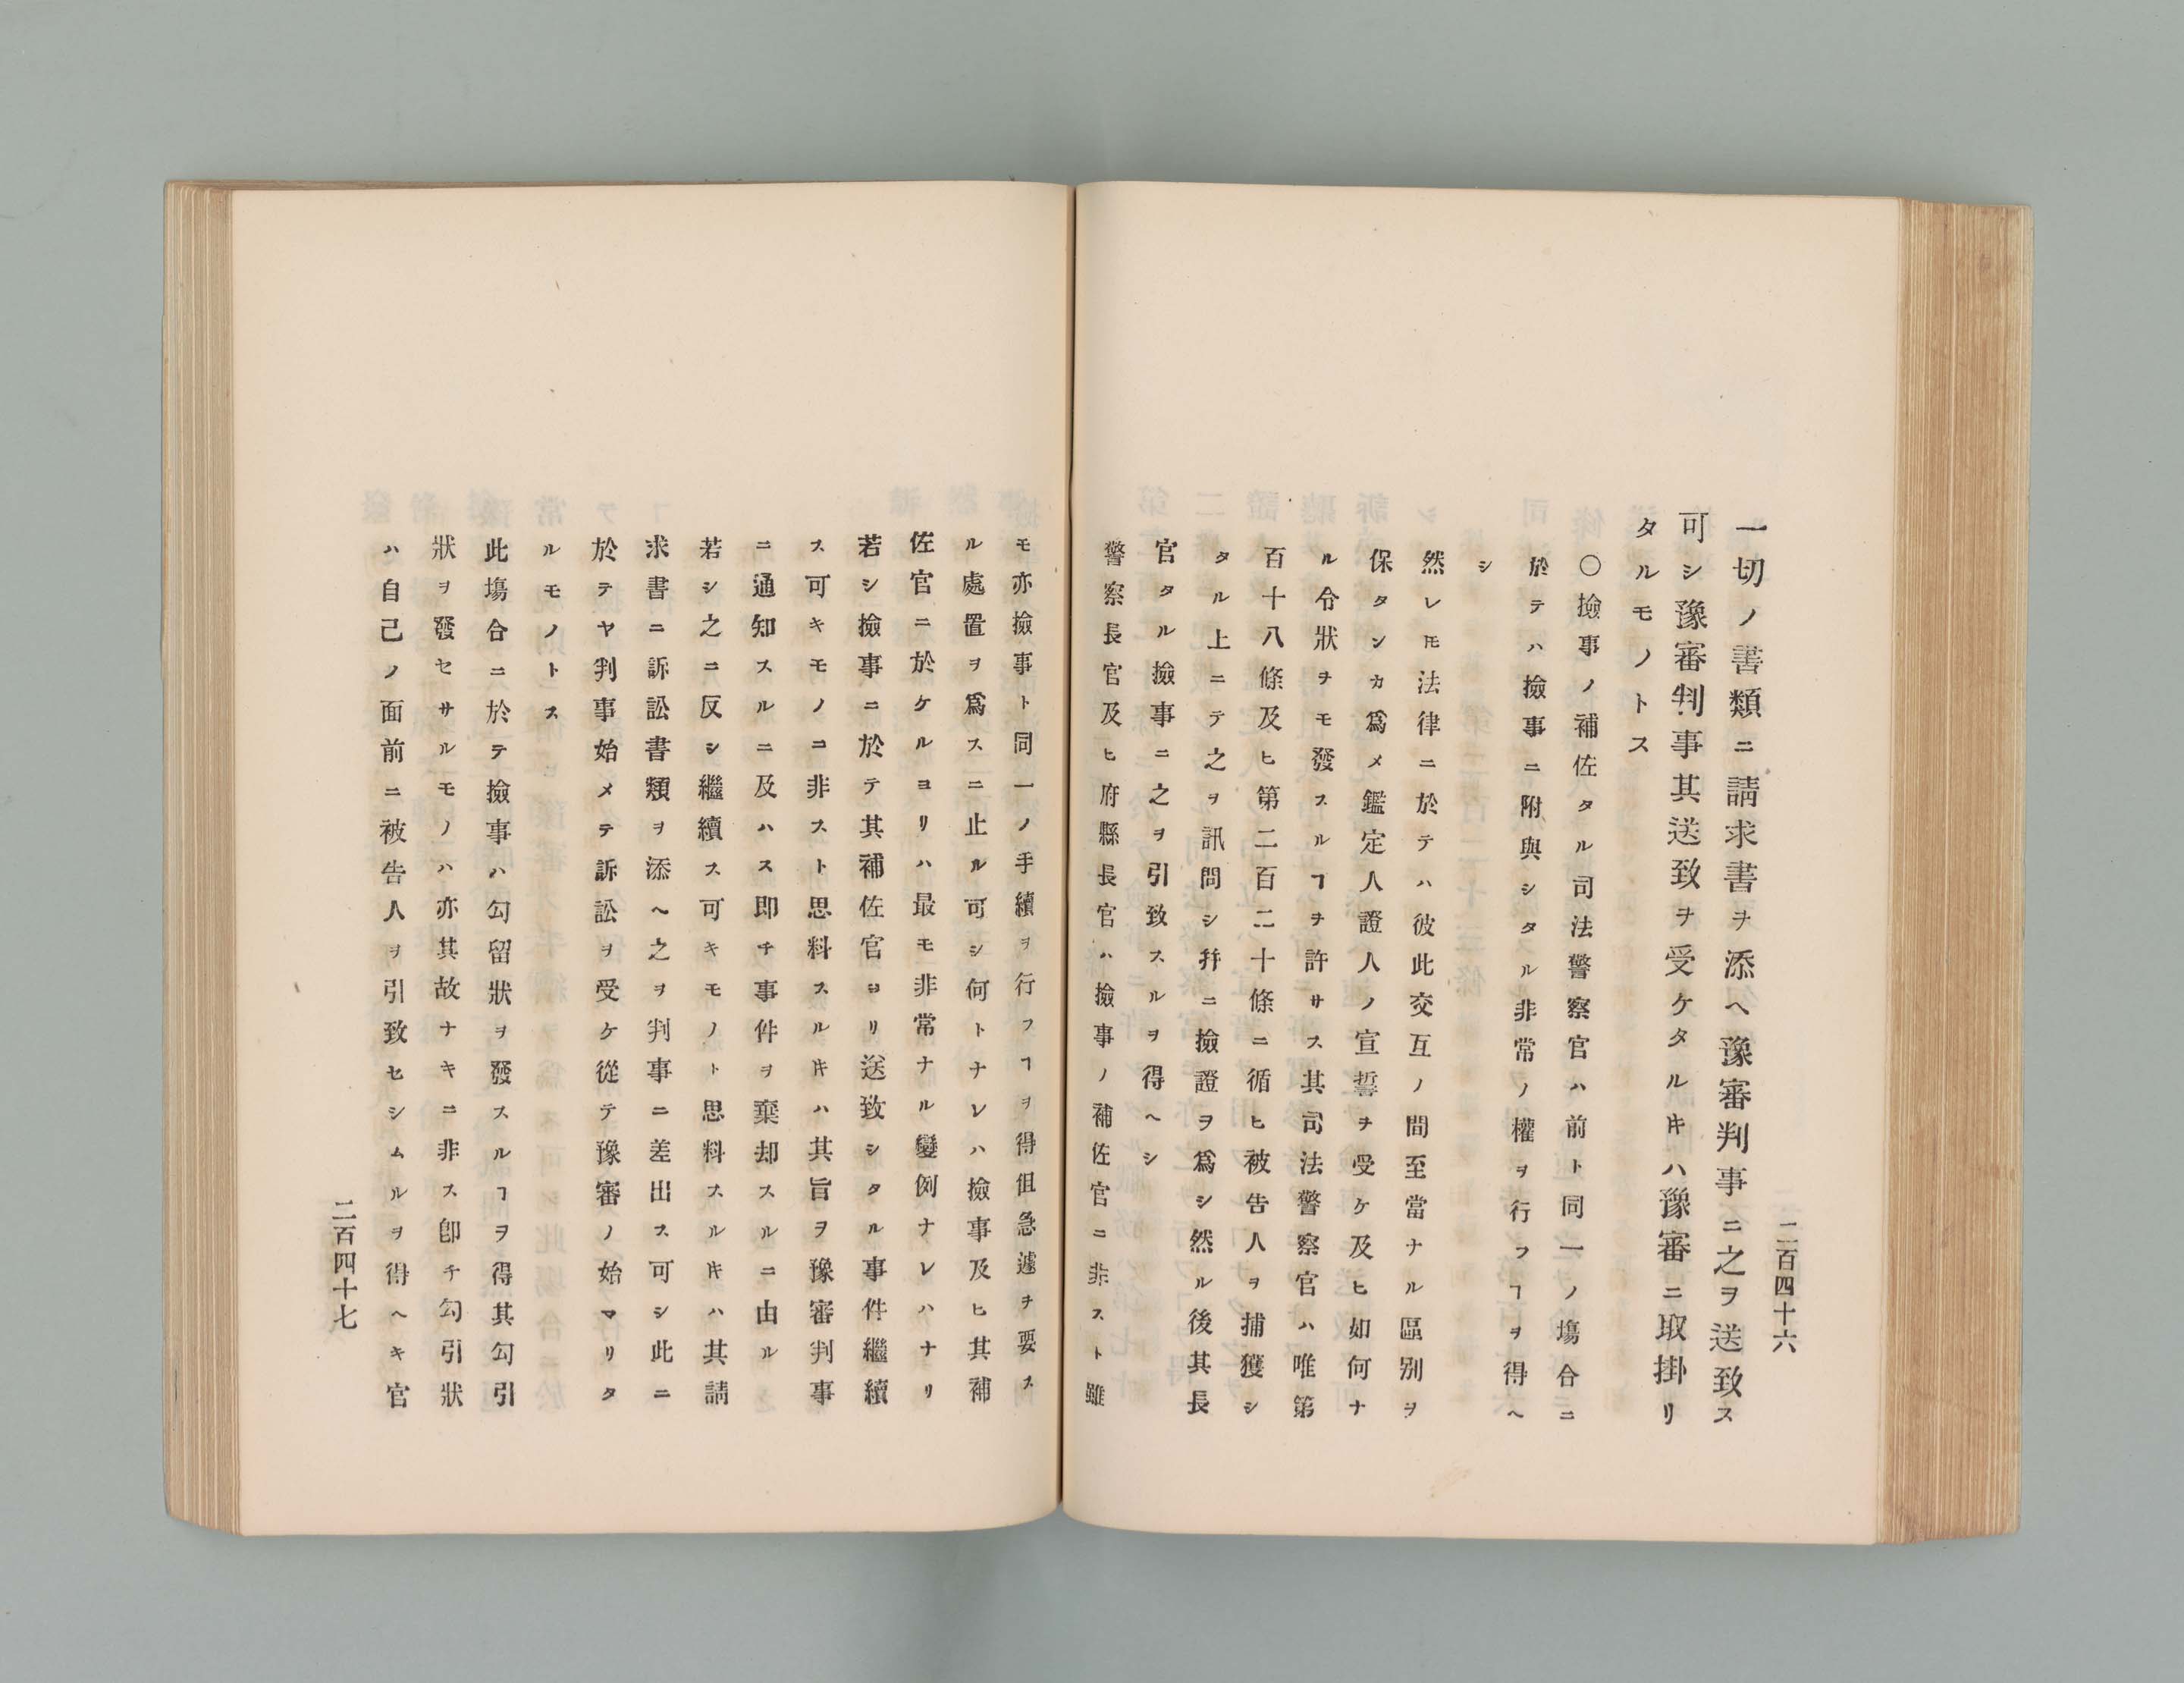 二百四十六
一切ノ書類ニ請求書ヲ添ヘ豫審判事ニ之ヲ送致ス
可シ豫審判事其送致ヲ受ケタルキハ豫審ニ取掛リ
タルモノトス
〇撿事ノ補佐タル司法警察官ハ前ト同一ノ塲合ニ
於テハ撿事ニ附與シタル非常ノ權ヲ行フヿヲ得ヘ
シ
然レ𪜈法律ニ於テハ彼此交互ノ間至當ナル區别ヲ
保タンカ爲メ鑑定人證人ノ宣誓ヲ受ケ及ヒ如何ナ
ル令狀ヲモ發スルヿヲ許サス其司法警察官ハ唯第
百十八條及ヒ第二百二十條ニ循ヒ被告人ヲ捕獲シ
タル上ニテ之ヲ訊問シ幷ニ撿證ヲ爲シ然ル後其長
官タル撿事ニ之ヲ引致スルヲ得ヘシ
警察長官及ヒ府縣長官ハ撿事ノ補佐官ニ非スト雖
モ亦撿事ト同一ノ手續ヲ行フヿヲ得但急遽ヲ要ス
ル處置ヲ爲スニ止ル可シ何トナレハ撿事及ヒ其補
佐官ニ於ケルヨリハ最モ非常ナル變例ナレハナリ
若シ撿事ニ於テ其補佐官ヨリ送致シタル事件繼續
ス可キモノニ非スト思料スルキハ其旨ヲ豫審判事
ニ通知スルニ及ハス即チ事件ヲ棄却スルニ由ル
若シ之ニ反シ繼續ス可キモノト思料スルキハ其請
求書ニ訴訟書類ヲ添ヘ之ヲ判事ニ差出ス可シ此ニ
於テヤ判事始メテ訴訟ヲ受ケ從テ豫審ノ始マリタ
ルモノトス
此塲合ニ於テ撿事ハ勾留狀ヲ發スルヿヲ得其勾引
狀ヲ發セサルモノハ亦其故ナキニ非ス卽チ勾引狀
ハ自己ノ面前ニ被告人ヲ引致セシムルヲ得ヘキ官
二百四十七